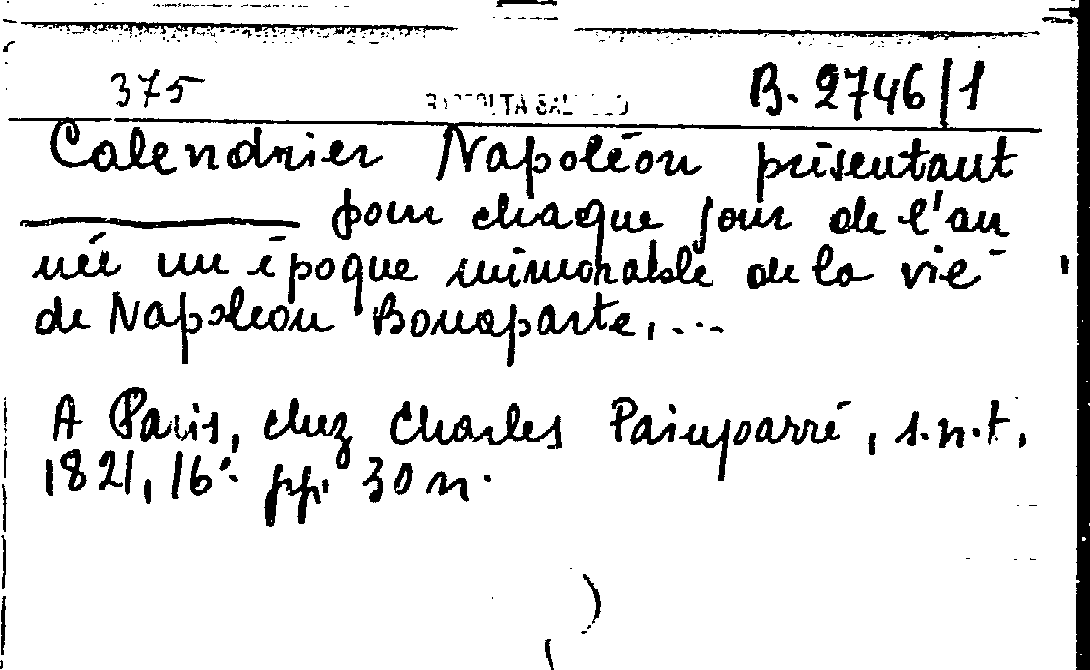 375 B. 2746/1
Calendrier Napoléon présentant
pour chaque jour de l'an
née un époque mémorable de la vie
de Napoleon Bonaparte, ...
A Paris, chez Charles Painparré, s.n.t.
1821, 16° pp. 30 n.